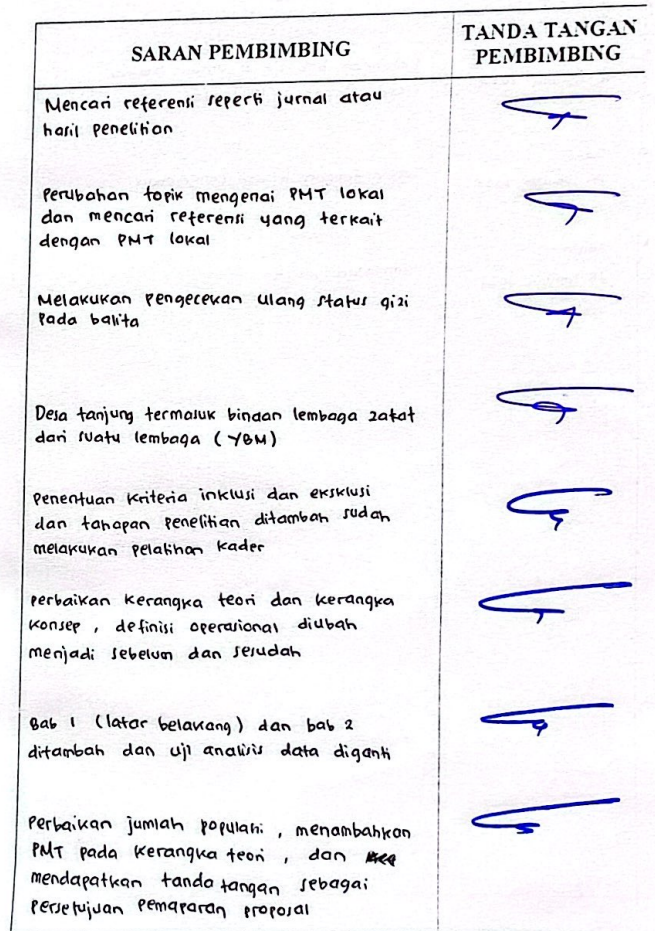 SARAN PEMBIMBING
TANDA TANGAN
PEMBIMBING
Mencari referensi seperti jurnal atau
hasil penelitian
Perubahan topik mengenai PMT lokal
dan mencari referensi yang terkait
dengan PMT lokal
Melakukan pengecekan ulang status gizi
pada balita
Desa tanjung termasuk binaan lembaga zakat
dari suatu lembaga (YBM)
Penentuan kriteria inklusi dan eksklusi
dan tahapan penelitian ditambah sudah
melakukan pelatihan kader
Perbaikan kerangka teori dan kerangka
konsep, definisi operasional diubah
menjadi sebelum dan sesudah
Bab 1 (latar belakang) dan bab 2
ditambah dan uji analisis data diganti
Perbaikan jumlah populasi, menambahkan
PMT pada kerangka teori, dan
mendapatkan tanda tangan sebagai
persetujuan pemaparan proposal